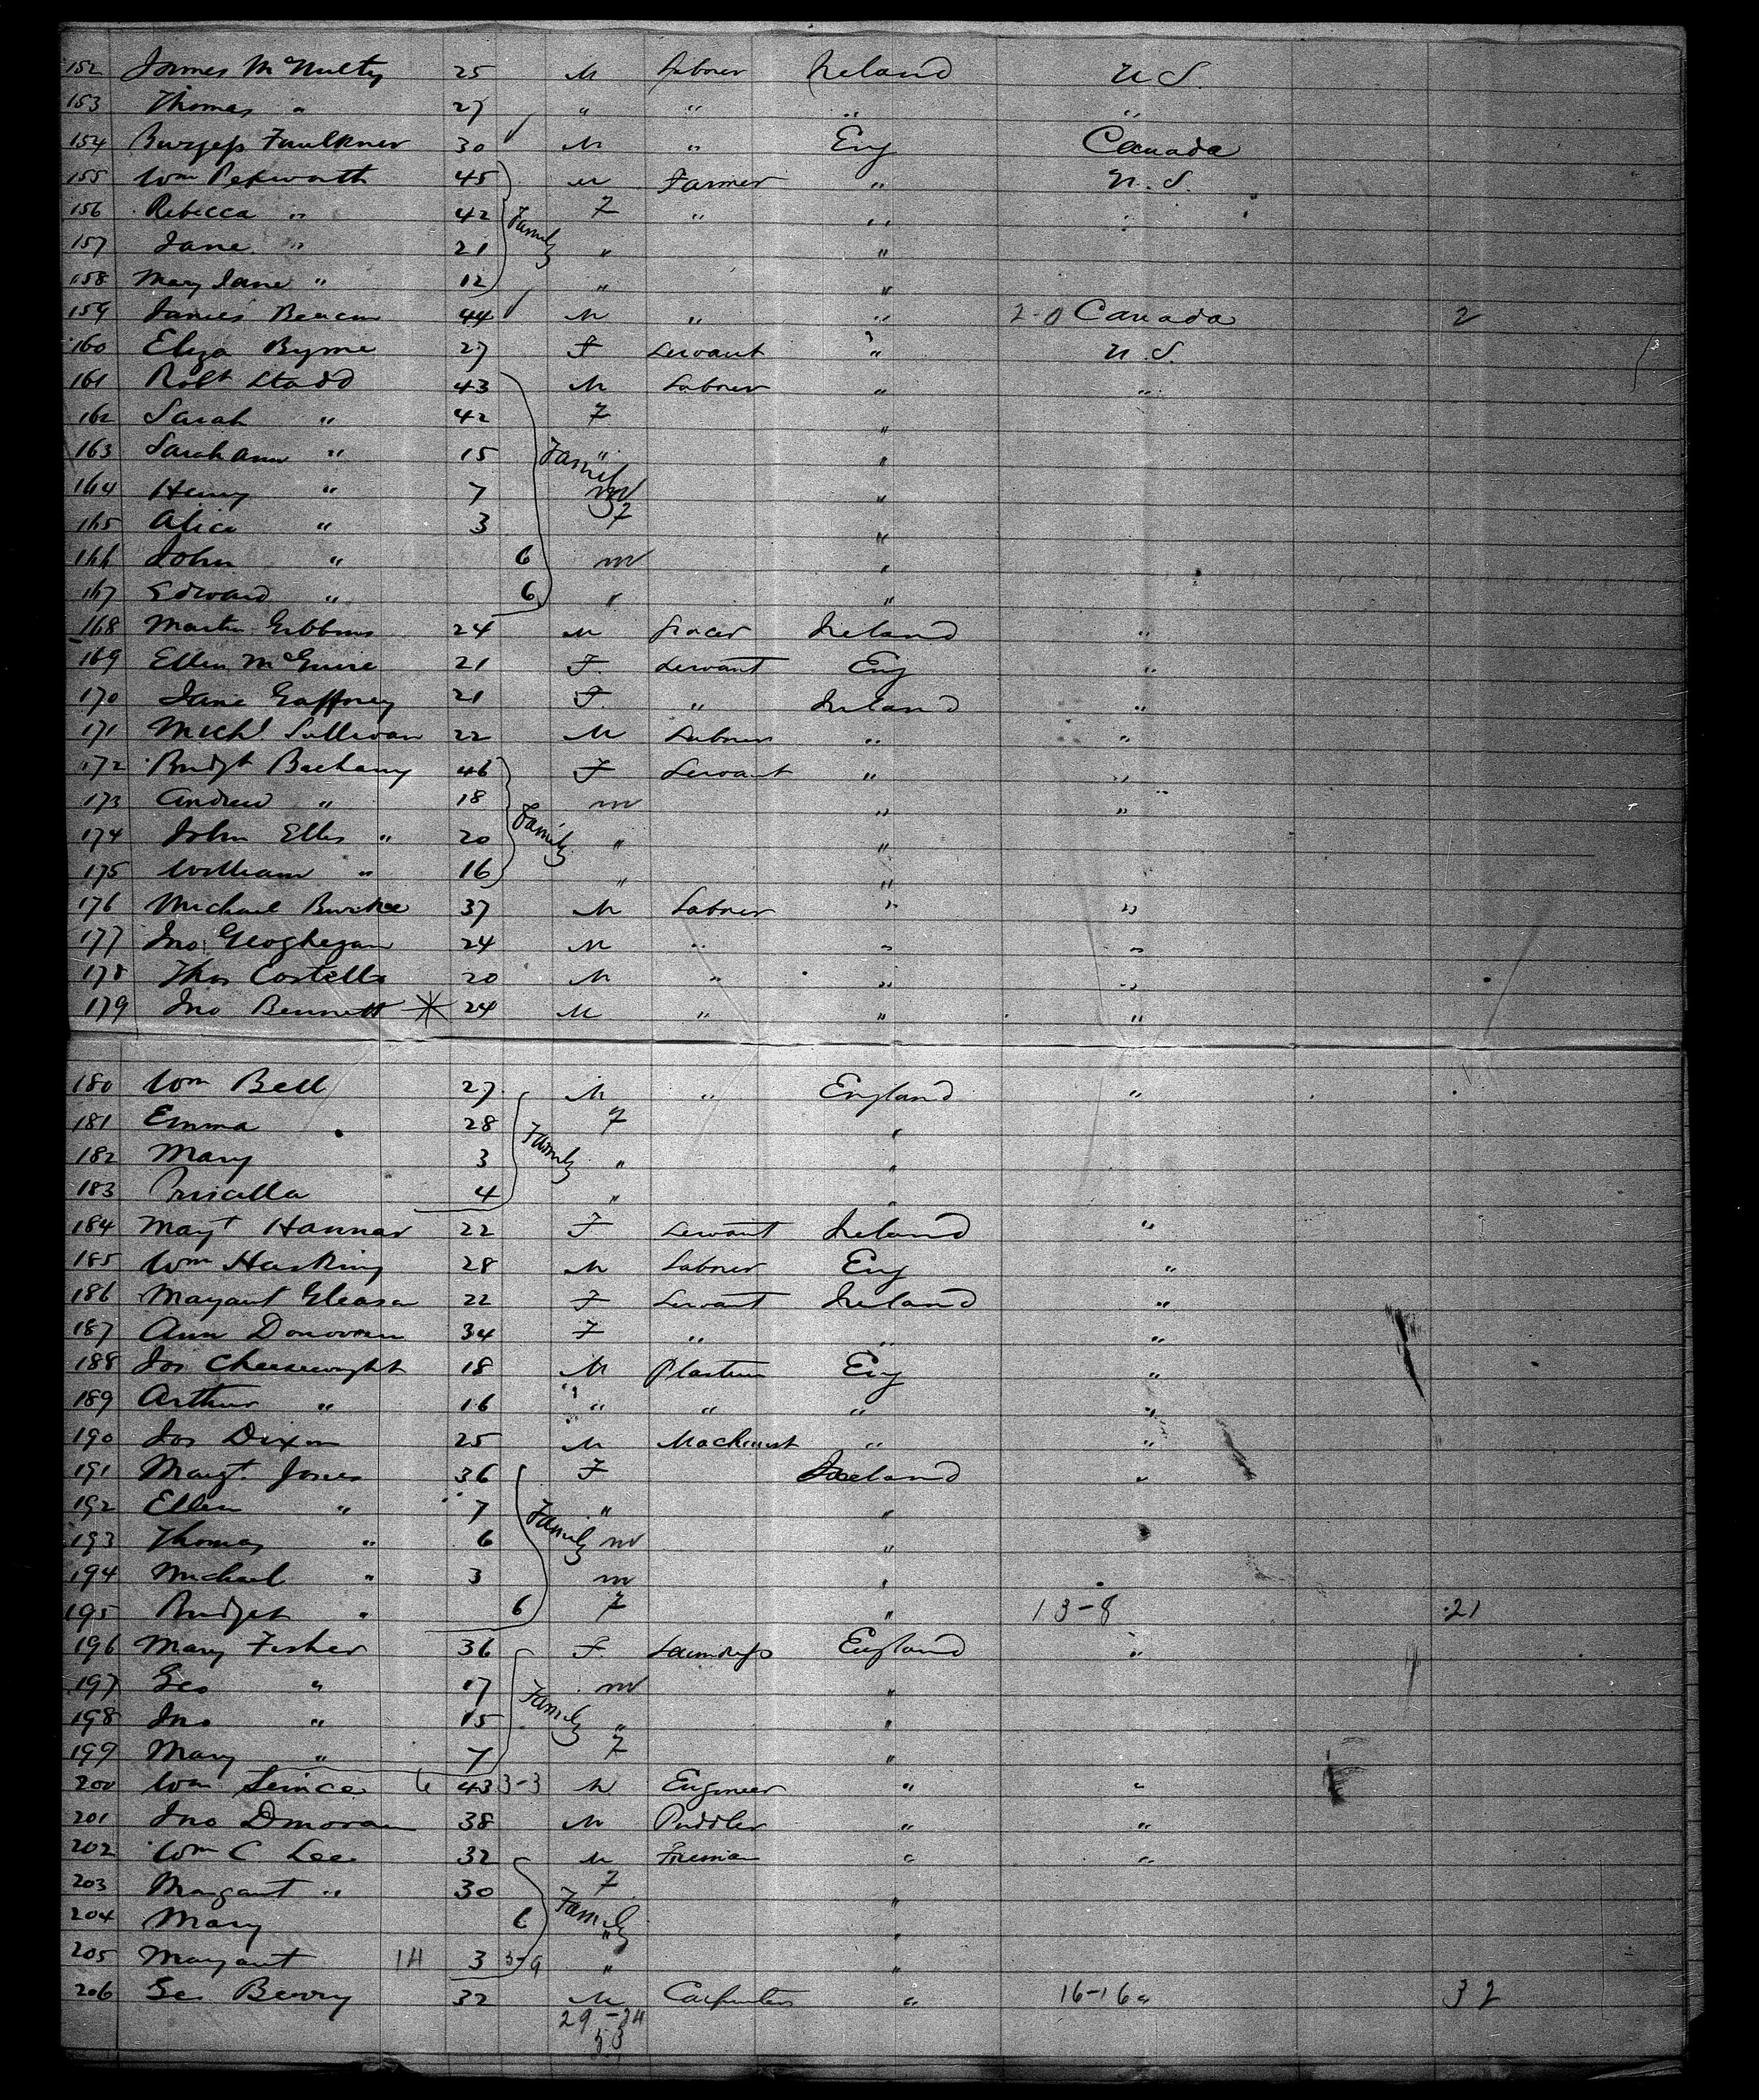 152 James McNulty 25 M Labner Ireland U S.
153 Thomas " 27 " " " "
154 Burgess Faulkner 30 M " Eng Canada
155 Wm Petworth 45 M Farmer " U.S.
156 Rebecca " 42 Family F " " "
157 Jane " 21 " "
158 Mary Jane " 12 " "
159 James Beacon 44 M " " 2-0 Canada 2
160 Eliza Byrne 27 F Servant " U.S.
161 Robt Stadd 43 M Labner " "
162 Sarah " 42 F "
163 Sarah Ann " 15 Family " "
164 Henry " 7 M "
165 Alice " 3 F "
166 John " 6 M "
167 Edward " 6 " "
168 Martin Gibbons 24 M Grocer Ireland "
169 Ellen McGuire 21 F. Servant Eng "
170 Jane Gaffney 21 F. " Ireland "
171 Michl Sullivan 22 M Labner " "
172 Bridgt 46 F Servant " "
173 Andrew " 18 Family M " "
174 John Ellis " 20 " "
175 William " 16 " "
176 Michael Burke 37 M Labner " "
177 Jno Geoghegan 24 M " " "
178 Thos Costello 20 M " " "
179 Jno Bennett * 24 M " " "
180 Wm Bell 27 M " England "
181 Emma 28 Family F "
182 Mary 3 " "
183 Priscilla 4 " "
184 Margt Hannar 22 F Servant Ireland "
185 Wm Hasking 28 M Labner Eng "
186 Margaret Gleason 22 F Servant Ireland "
187 Ann Donovan 34 F " " "
188 Jos Cheesewright 18 M Plasterer Eng "
189 Arthur " 16 " " " "
190 Jos Dixon 25 M Machinist " "
191 Margt. Jones 36 F Ireland "
192 Ellen " 7 Family " "
193 Thomas " 6 M "
194 Michael " 3 M "
195 Bridget " 6 F " 13-8 21
196 Mary Fisher 36 F. Laundress England "
197 Geo " 17 Family M "
198 Jno " 15 " "
199 Mary " 7 F "
200 Wm 6 43 3-3 M Engineer " "
201 Jno Donovan 38 M Puddler " "
202 Wm C Lee 32 M Fireman " "
203 Margaret " 30 Family F "
204 Mary 6 " "
205 Margaret 14 3 3-9 " "
206 Geo Berry 32 M Carpenter " 16-16 " 32
29-24
53